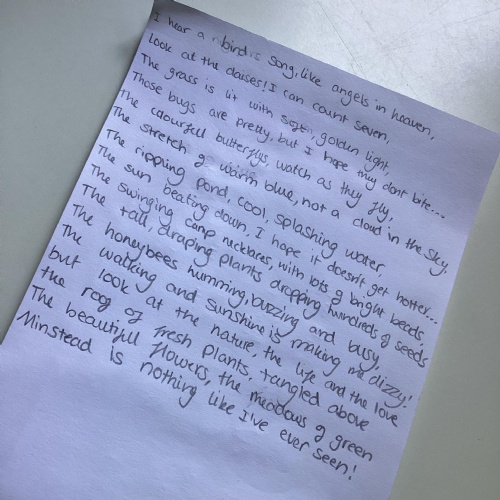 I hear a bird's song, like angels in heaven,
look at the daisies! I can count seven,
The grass is lit with soft, golden light,
Those bugs are pretty, but I hope they dont bite...
The colourful butterflys watch as they fly,
The stretch of warm blue, not a cloud in the sky.
The ripping pond, cool, splashing water,
The sun beating down, I hope it doesn't get hotter...
The swinging camp necklaces, with lots of bright beads,
The tall, draping plants dropping hundreds of seeds
The honeybees humming, buzzing and busy,
The walking and sunshine is making me dizzy!
but look at the nature, the life and the love
the roof of fresh plants, tangled above
The beautiful flowers, the meadows of green
Minstead is nothing like I've ever seen!